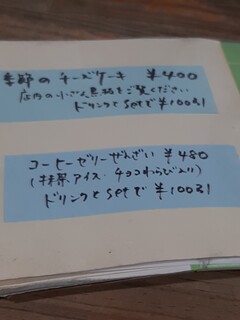 季節のチーズケーキ ¥400
店内の小さい黒板をご覧ください
ドリンクとsetで¥100引
コーヒーゼリーぜんざい ¥480
(抹茶アイス・チョコわらび入り)
ドリンクとsetで¥100引